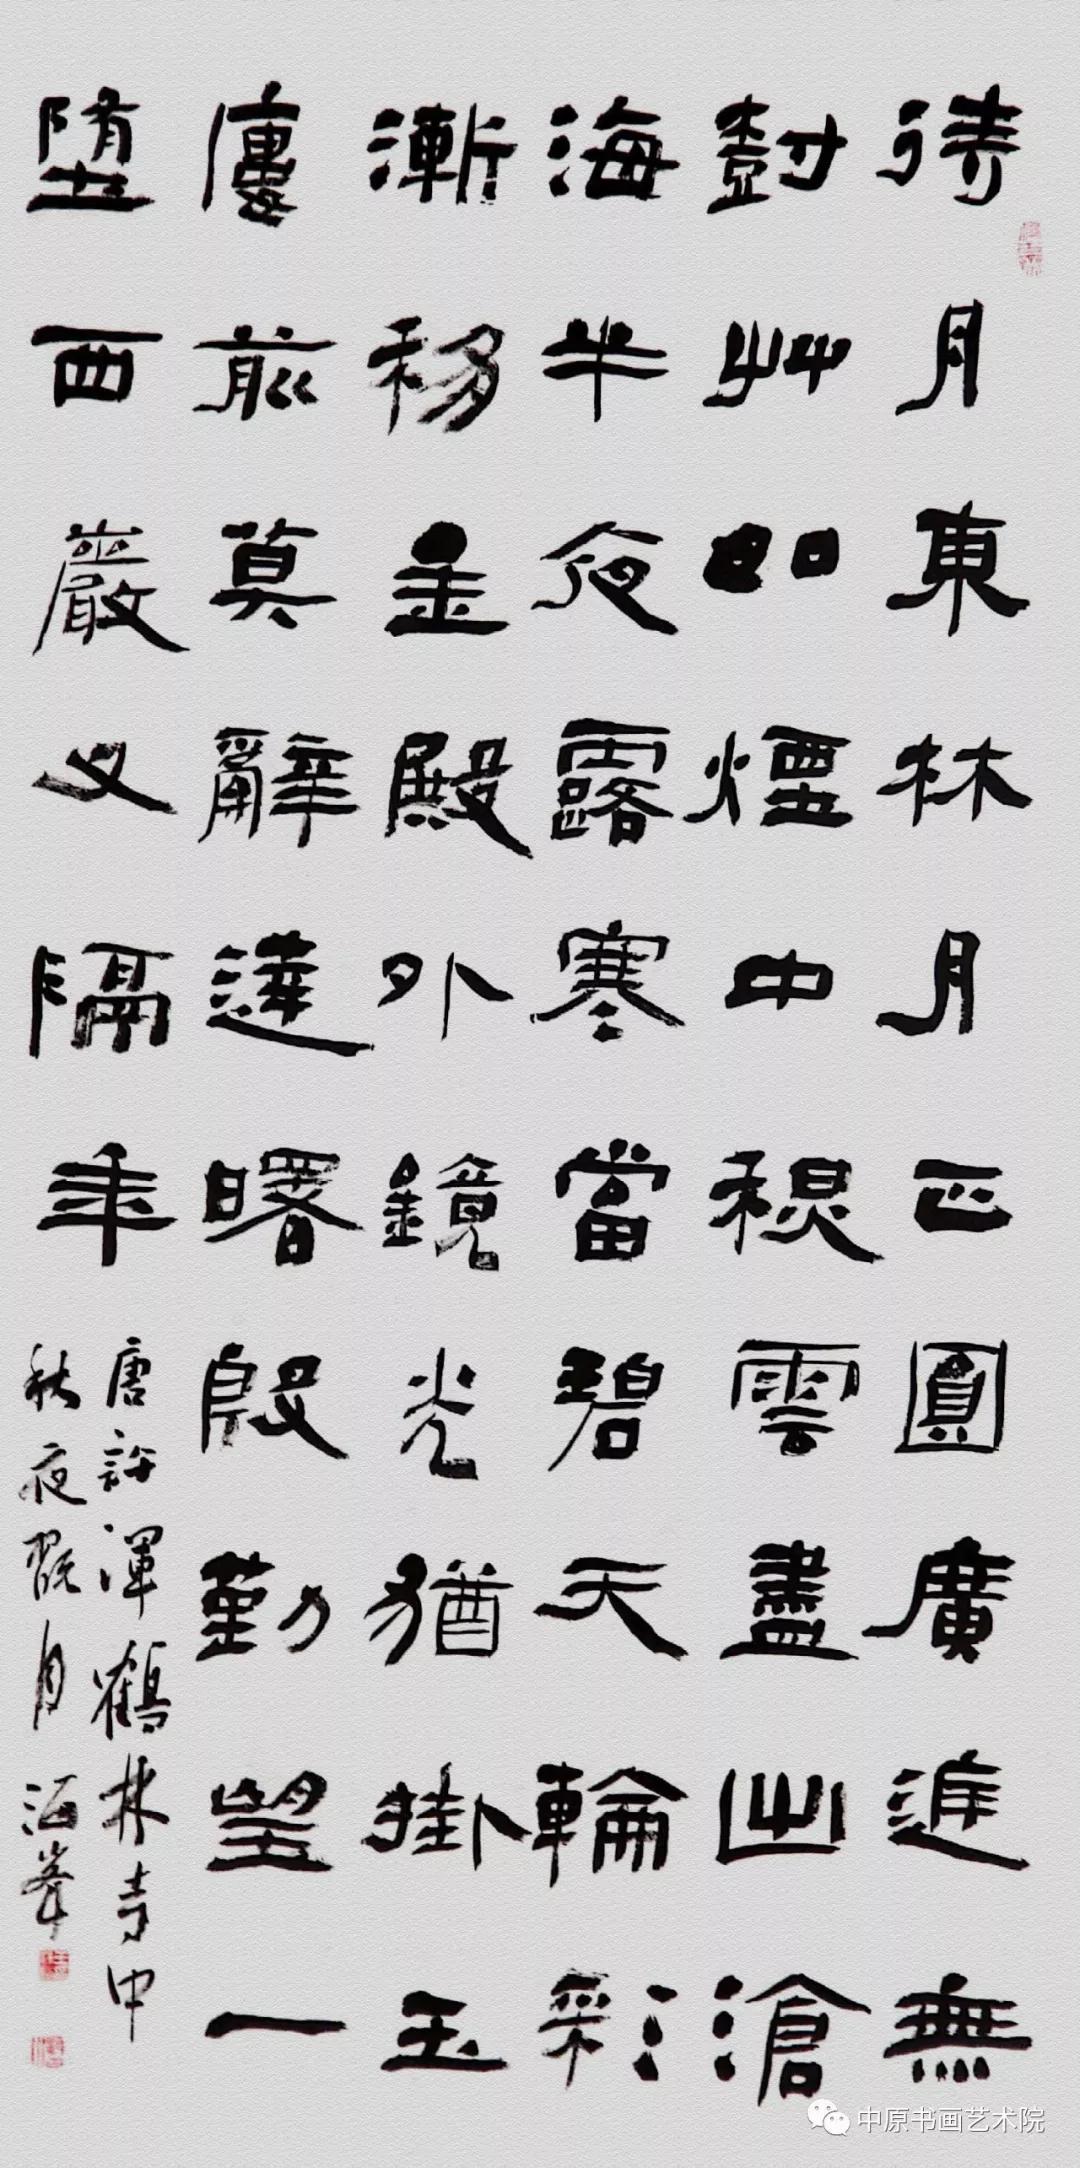 待月東林月正圓廣庭無
樹艸如煙中秋雲盡出滄
海半夜露寒當碧天輪彩
漸移金殿外鏡光猶掛玉
廔前莫辭達曙殷勤望一
堕西巖又隔年
唐許渾鶴林寺中
秋夜翫月海峯
中原书画艺术院